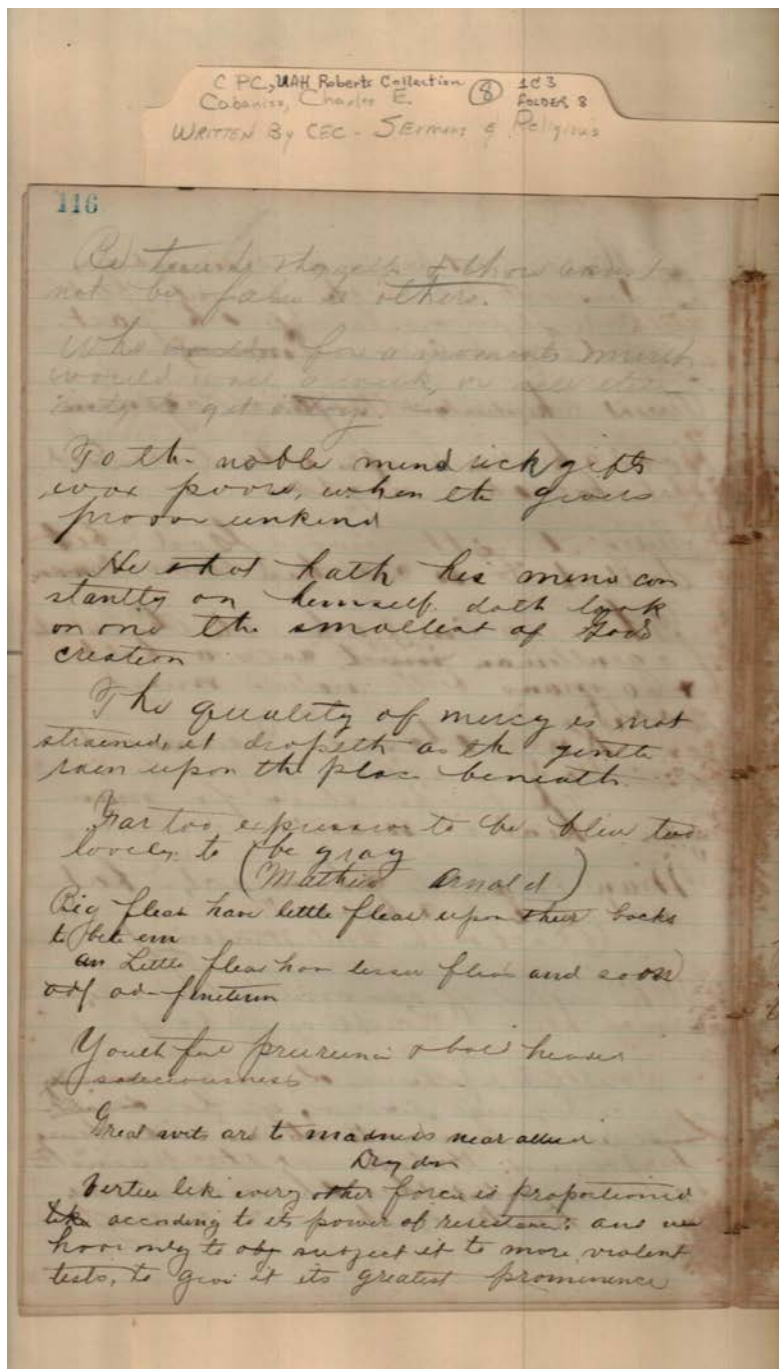 CPC, UAH Roberts Collection 8 1C3
Cabaniss, Charles E. FOLDER 8
WRITTEN By CEC - Sermons & Religious
116
Be true to thyself & thou canst
not be false to others.
Who for a moments mirth
would wail a week, or
to get a
To the noble mind rich gifts
wax poor, when the givers
prove unkind
He that hath his mind con
stantly on himself. doth look
on one the smallest of Gods
creation
The quality of mercy is not
strained, it dropeth as the gentle
rain upon the place beneath.
Far too expressive to be blue too
lovely to be gray
(Mathew Arnold)
Big fleas have little fleas upon their backs
to bite em
an Little fleas have lesser fleas and so on
ad finitum
Youthful & bald headed
salaciousness
Great wits are to madness near allied
Dryden
Vertue like every other force is proportioned
like according to its power of resistance: and we
have only to obj subject it to more violent
tests, to give it its greatest prominence